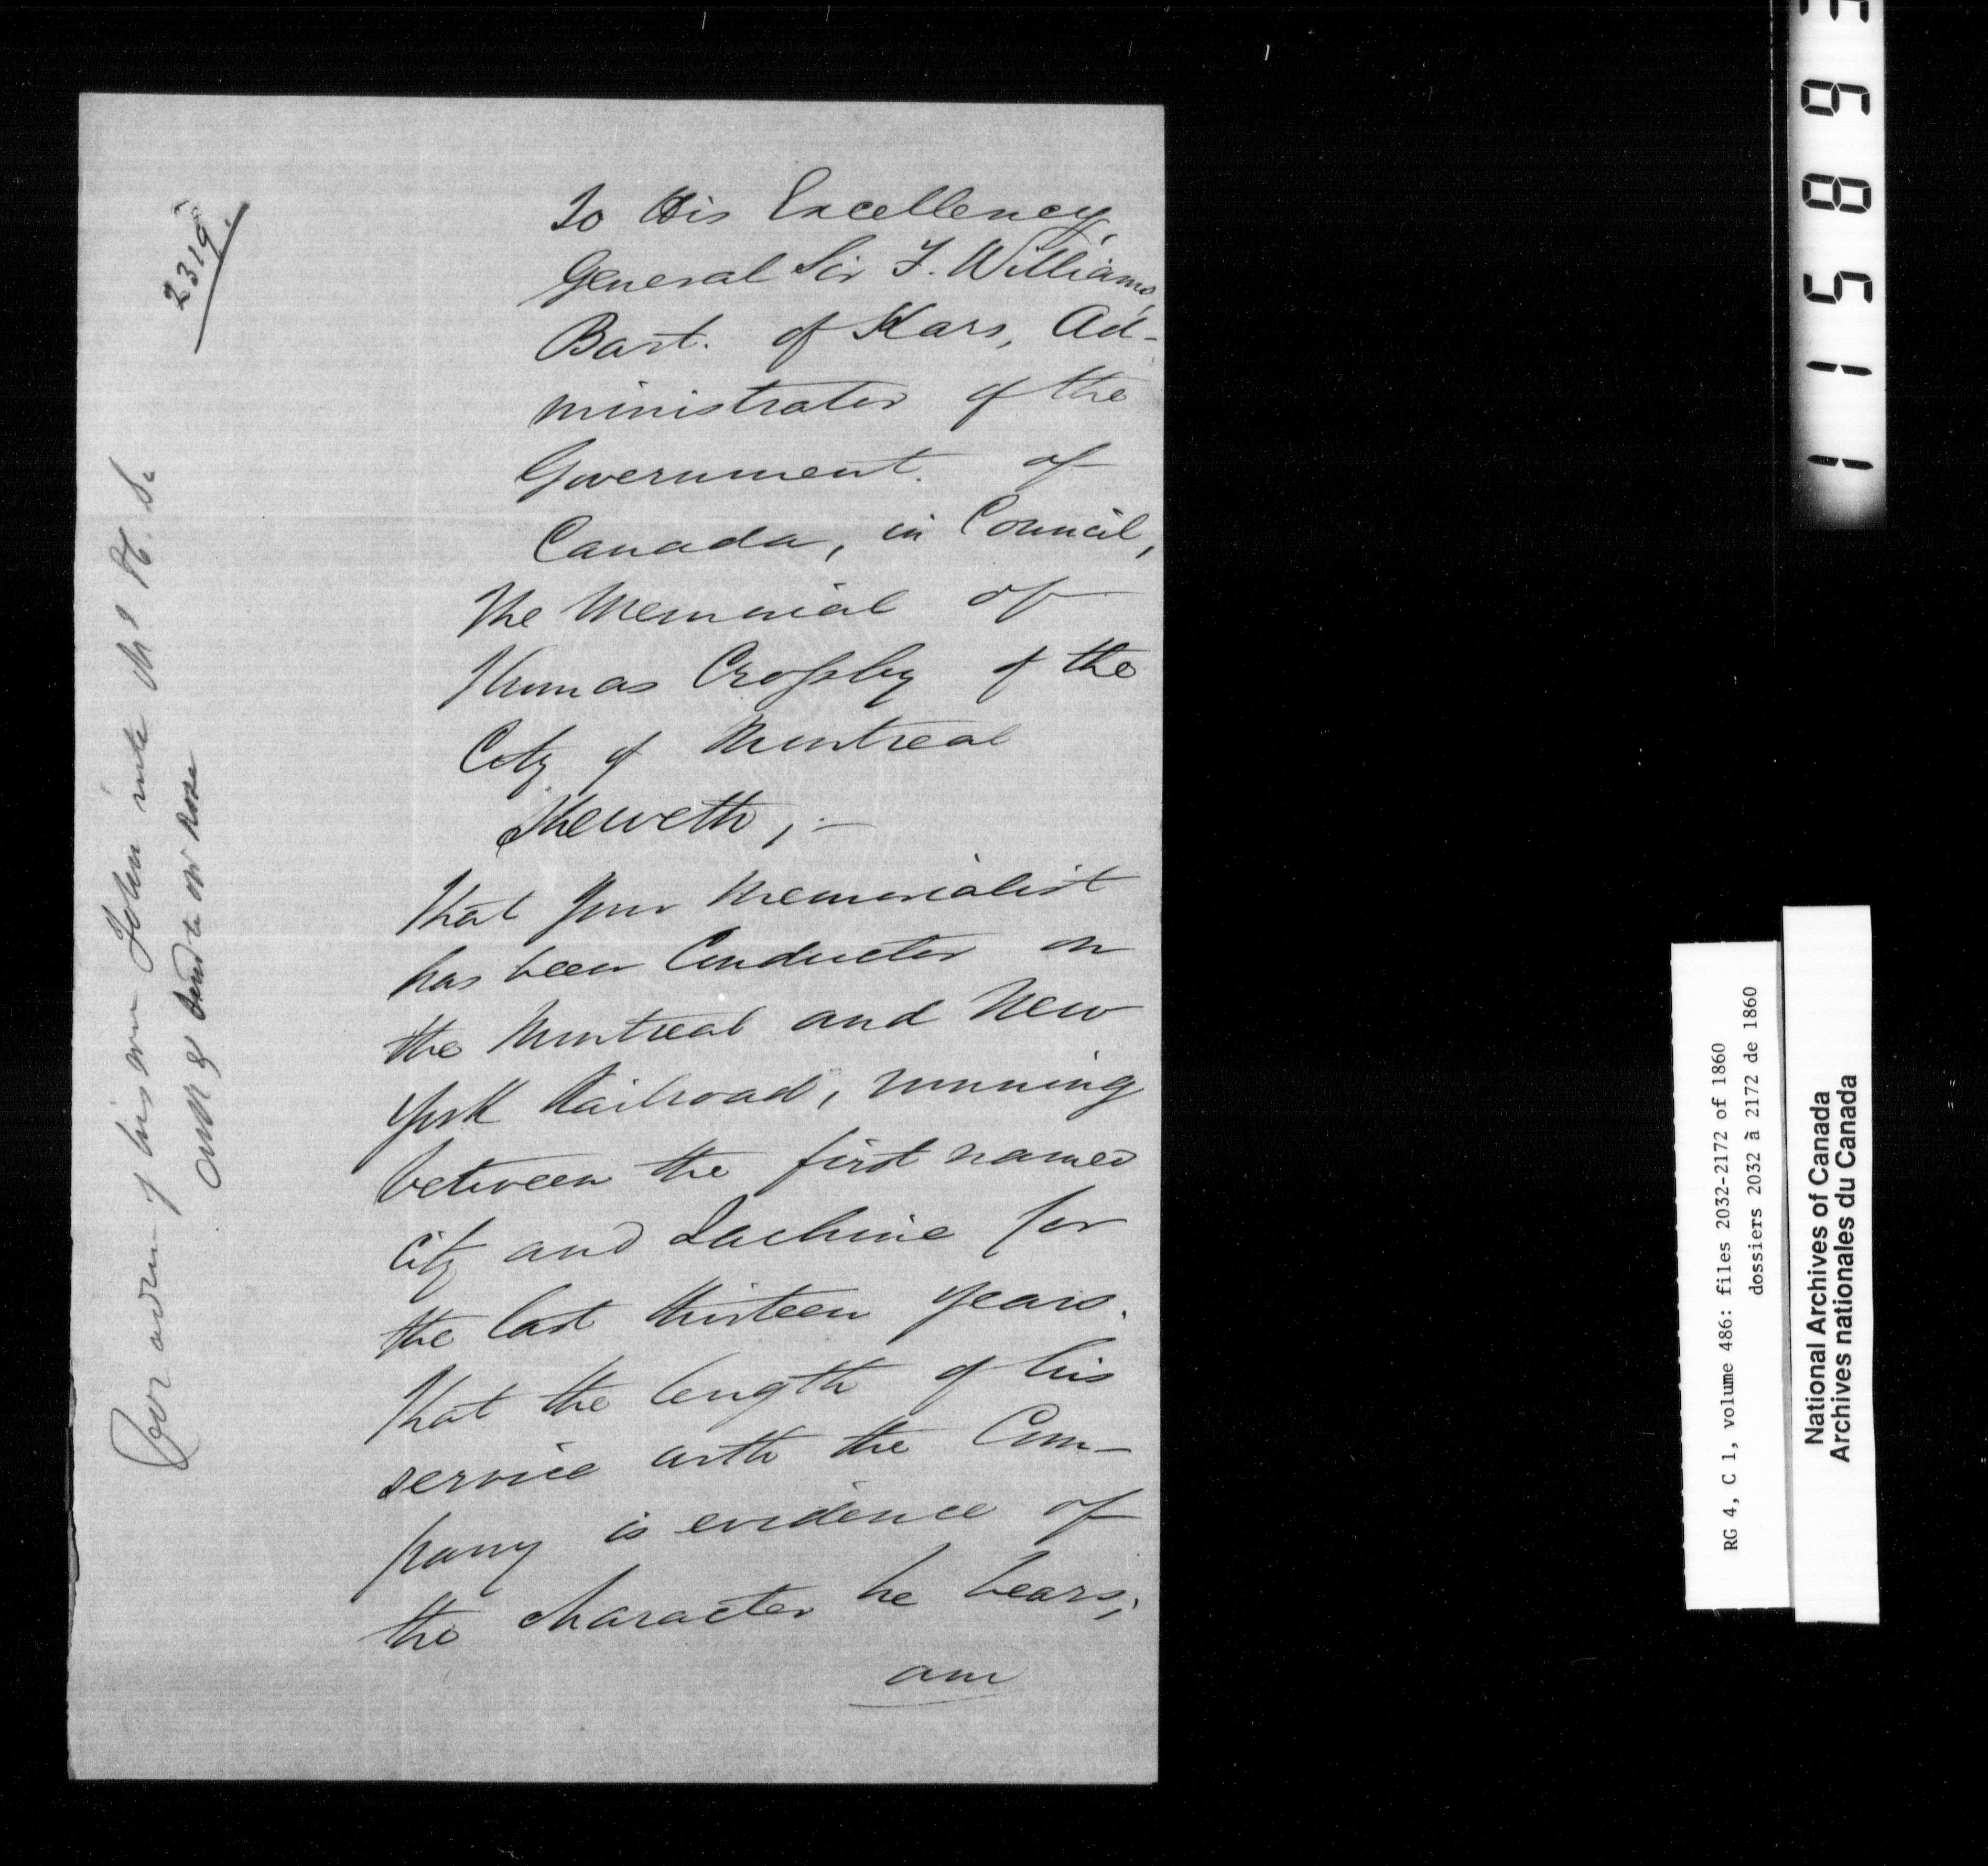 2319
To His Excellency,
General Sir F. Williams,
Bart. of Kars, Ad-
ministrator of the
Government of
Canada, in Council,
The Memorial of
Thomas Crossby of the
City of Montreal
Sheweth, :—
That your Memorialist
has been Conductor on
the Montreal and New
York Railroad, running
between the first named
City and Lachine for
the last thirteen years.
That the length of his
service with the Com-
pany is evidence of
the character he bears;
am
of his own John
send to Mr Rose
11589
RG 4, C 1, volume 486: files 2032-2172 of 1860
dossiers 2032 à 2172 de 1860
National Archives of Canada
Archives nationales du Canada